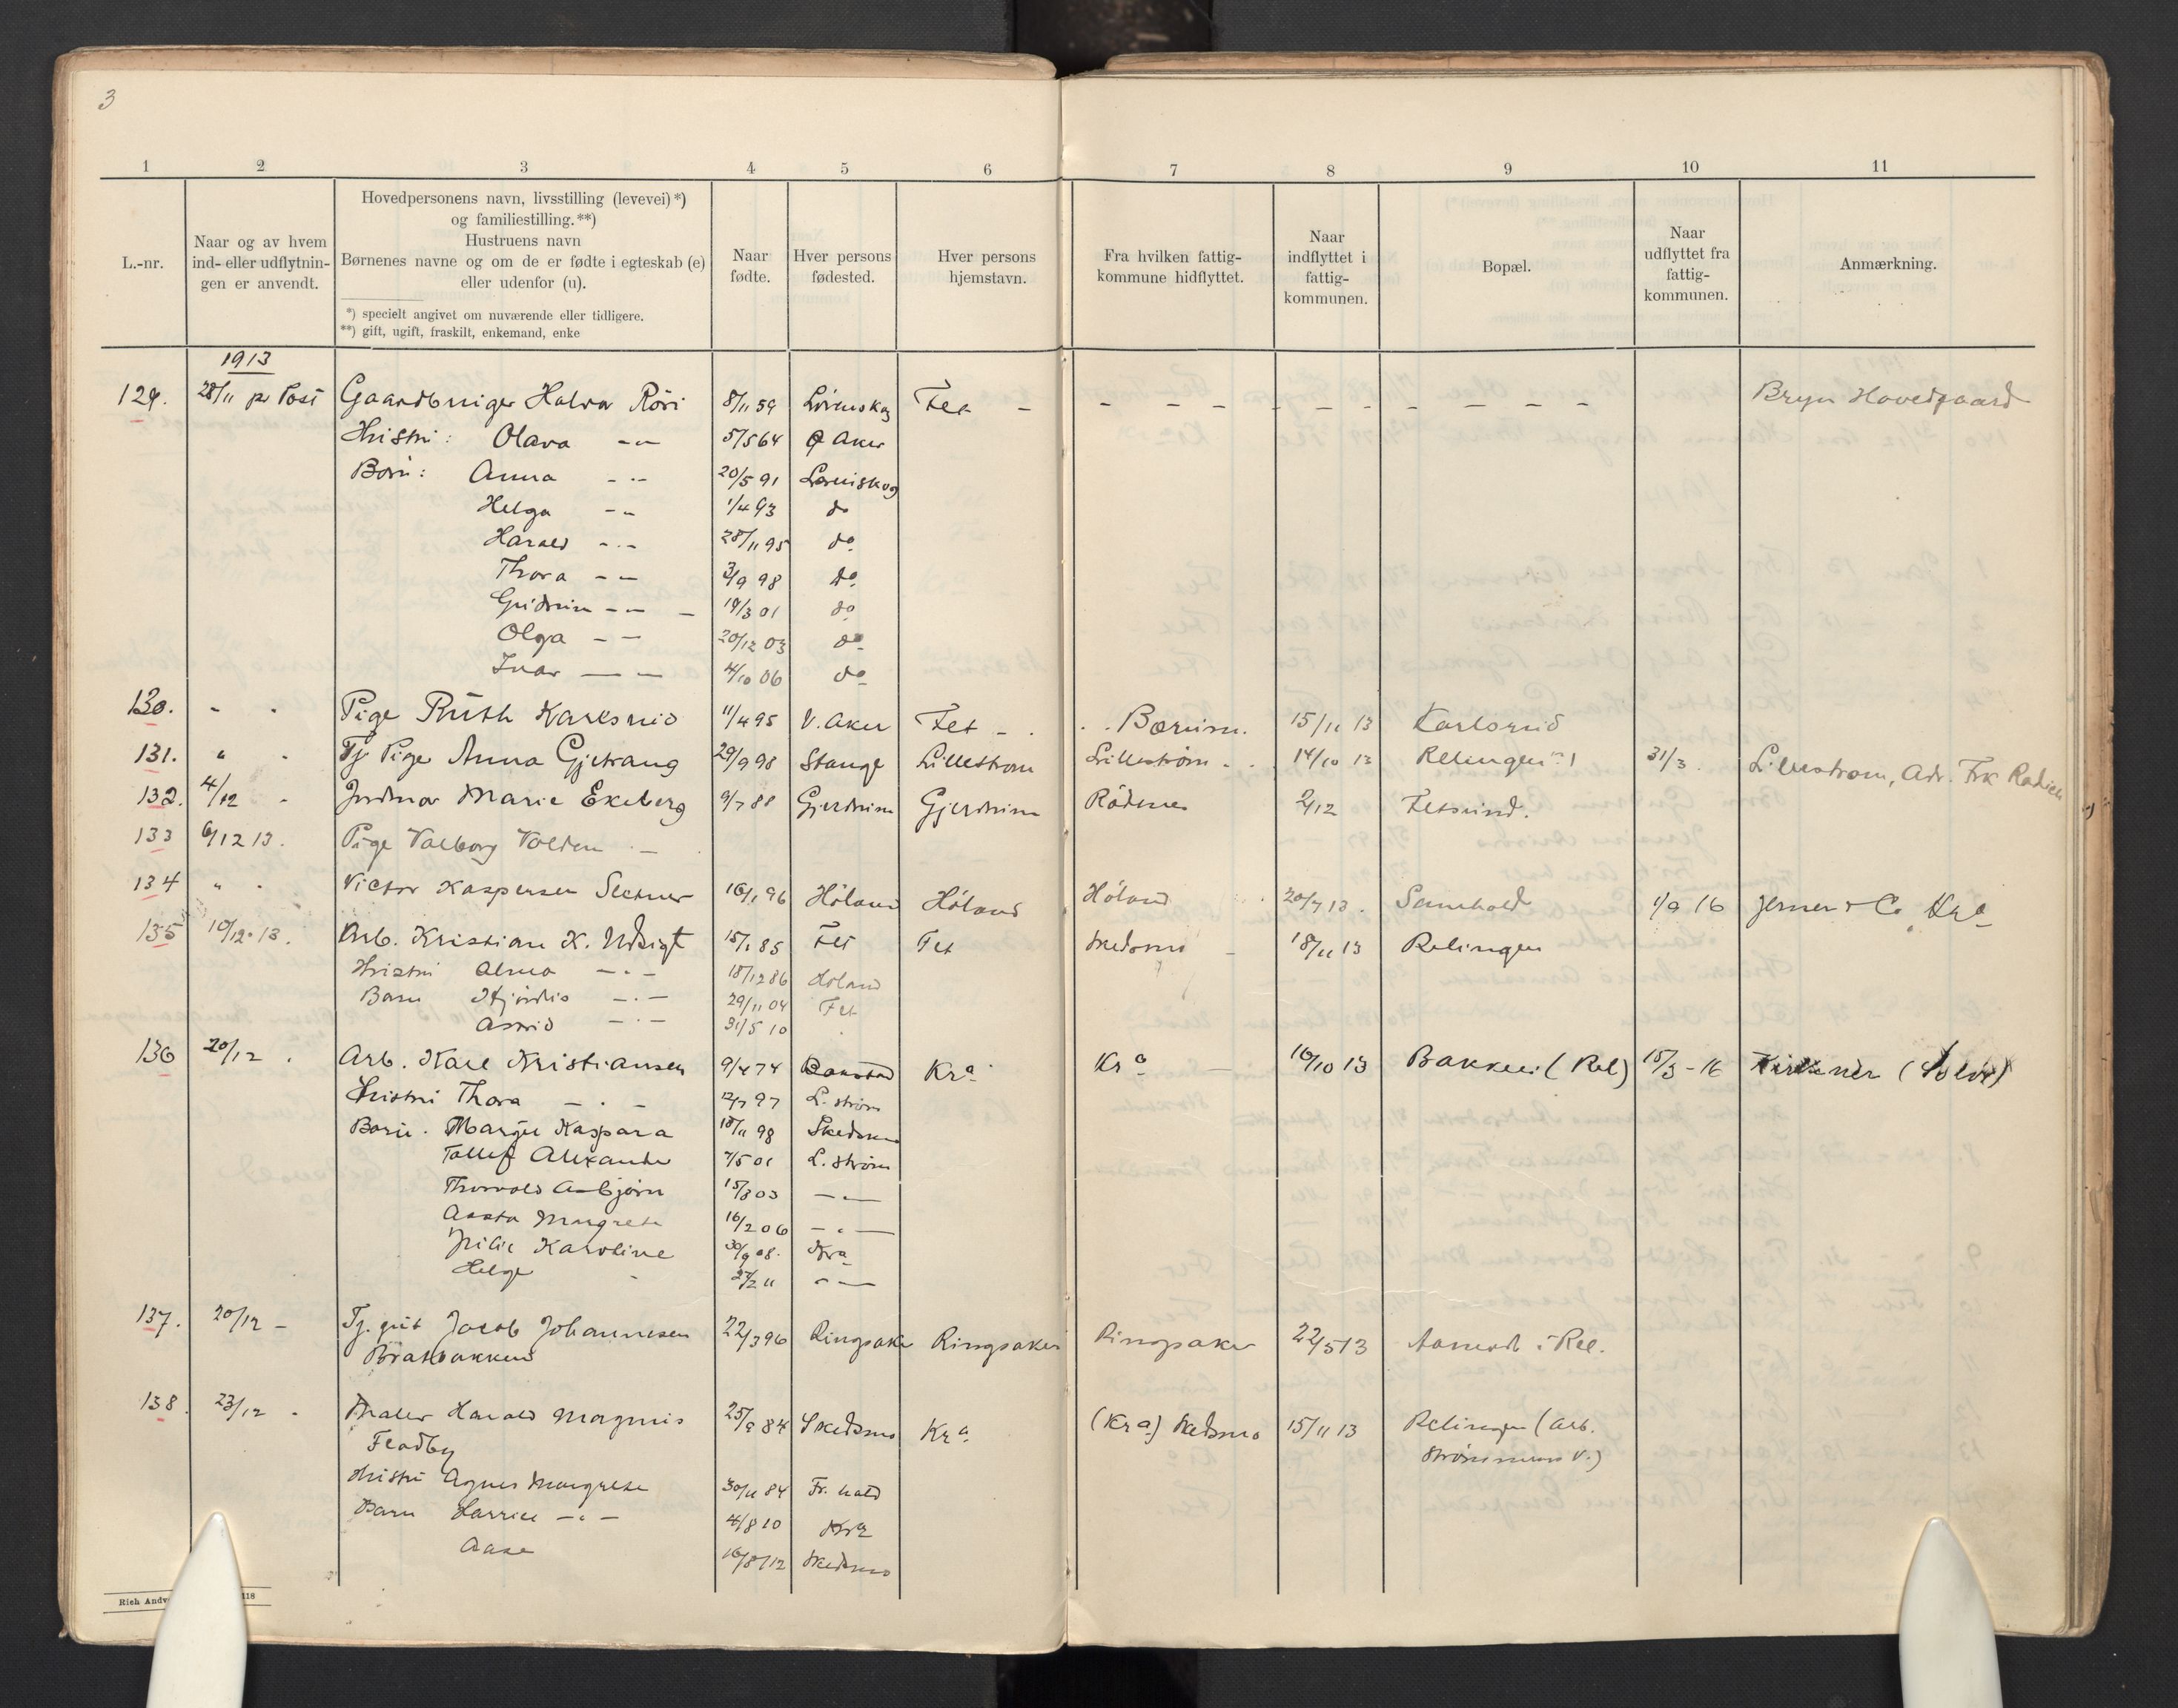 3
1 2 3 4 5 6 7 8 9 10 11
L.-nr.
Naar og av hvem
ind- eller udflytnin-
gen er anvendt.
Hovedpersonens navn, livsstilling (levevei)*)
og familiestilling.**)
Hustruens navn
Børnenes navne og om de er fødte i egteskab (e)
eller udenfor (u).
*) specielt angivet om nuværende eller tidligere.
**) gift, ugift, fraskilt, enkemand, enke
Naar
fødte.
Hver persons
fødested.
Hver persons
hjemstavn.
Fra hvilken fattig-
kommune hidflyttet.
Naar
indflyttet i
fattig-
kommunen.
Bopæl.
Naar
udflyttet fra
fattig-
kommunen.
Anmærkning.
1913
129. 28/11 pr Post Gaardbruger Halvor Röri 8/11 59 Lörenskog Fet - - - - - - - - - - - Bryn Hovedgaard
Hustru: Olava -"- 5/5 64 Aker
Börn: Anna -"- 20/5 91 Lørenskog
Helga -"- 1/4 93 do
Harald -"- 28/11 95 do
Thora -"- 3/9 98 do
Gudrun -"- 19/3 01 do
Olga -"- 20/12 03 do
Ivar -"- 4/10 06 do
130. - - Pige Ruth Karlsrud 11/4 95 V. Aker Fet - Bærum. 15/11 13 Karlsrud
131. " - Tj Pige Anna Gjetrang 29/9 98 Stange Lillestrøm Lillestrøm 14/10 13 Relingen 31/3. Lillestrøm, Adr. Frk
132. 4/12 - Jordmor Marie Ekeberg 9/7 88 Gjerdrum Gjerdrum Rödenes 2/12 Fetsund.
133 6/12 13. Pige Valborg Volden -
134 " - Victor Kaspersen 16/1 96 Höland Höland Höland 20/7 13. 1/9 16 & Co Kra
135 10/12-13. Arb. Kristian K. Udsigt 15/1 85 Fet Fet Skedsmo - 18/11 13 Relingen
Hustru Alma -"- 18/12 86 Höland
Barn Hjördis -"- 29/11 04 Fet
Astrid -"- 31/5 10
136 20/12 . Arb. Karl Kristiansen 9/4 74 Kra. Kra - 16/10 13 Bakken (Rel) 15/3-16
Hustru Thora - " - 97 L. ström
Börn. Margit Kaspara 18/11 98 Skedsmo
Tollef Alexander 7/5 01 L. ström
Thorvald Asbjörn 15/8 03 -"-
Aasta Margrete 16/2 06 -"-
Karoline 30/9 08. Kra
Helge 27/2 11 -"-
137. 20/12 - Tj. gut Jacob Johannesen 22/3 96 Ringsaker Ringsaker Ringsaker 22/5 13 i Rel.
Bratbakken
138. 23/12 - Maler Harald Magnus 25/9 84 Skedsmo Kra. (Kra) Skedsmo 15/11 13 Relingen (Arb.
Fladby Strömmens V.)
Hustru Agnes Margrete 30/11 84 Fr. hald
Barn -"- 4/8 10 Kra
Aase 16/8 12 Skedsmo
Rich Andv 118